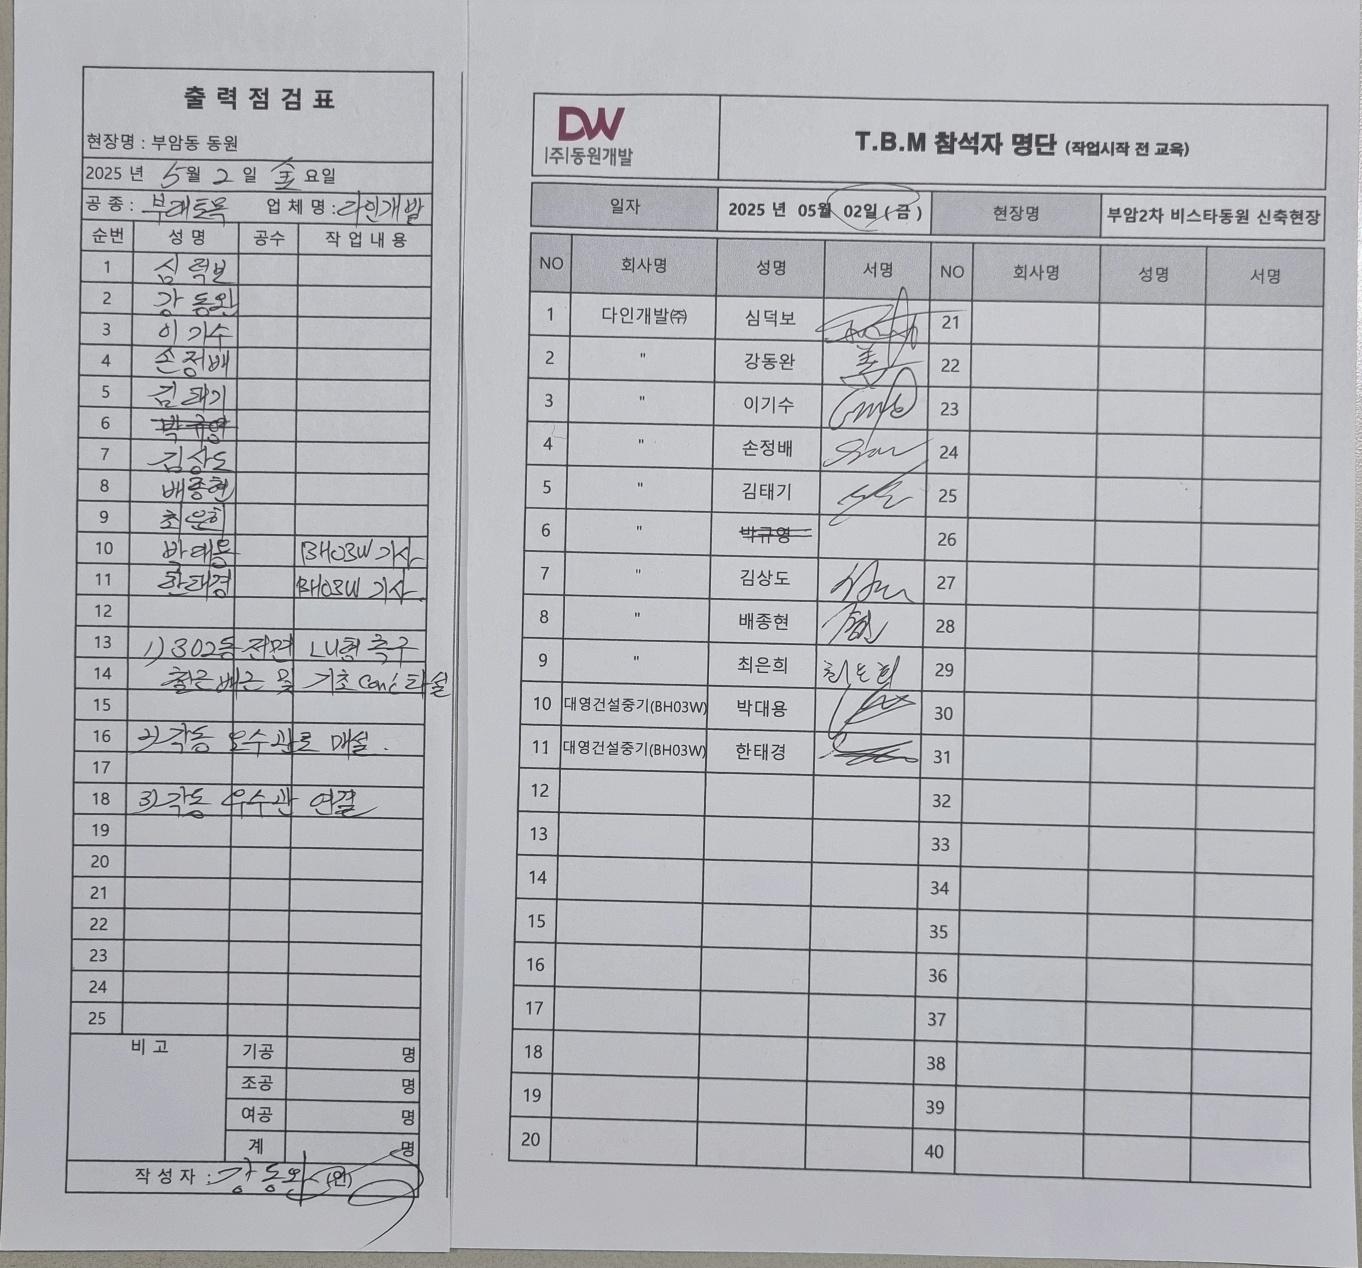 출력점검표
현장명 : 부암동 동원
2025 년 5월 2 일 金 요일
공 종 : 부대토목 업 체 명 : 다인개발
순번 성 명 공수 작 업 내 용
1 심덕보
2 강동완
3 이기수
4 손정배
5 김태기
6 박규영
7 김상도
8 배종현
9 최은희
10 박대용 BH03W 기사
11 한태경 BH03W 기사.
12
13 1) 302동 전면 LU형 측구
14 철근 배근 및 기초 con'c 타설
15
16 2) 각동 오수관로 매설.
17
18 3) 각동 우수관 연결
19
20
21
22
23
24
25
비 고
기공 명
조공 명
여공 명
계 명
작 성 자 : 강동완 (인)
DW
|주|동원개발
T.B.M 참석자 명단 (작업시작 전 교육)
일자 2025 년 05월 02일 (금) 현장명 부암2차 비스타동원 신축현장
NO 회사명 성명 서명 NO 회사명 성명 서명
1 다인개발㈜ 심덕보 21
2 " 강동완 22
3 " 이기수 23
4 " 손정배 24
5 " 김태기 25
6 " 박규영 26
7 " 김상도 27
8 " 배종현 28
9 " 최은희 최은희 29
10 대영건설중기(BH03W) 박대용 30
11 대영건설중기(BH03W) 한태경 31
12 32
13 33
14 34
15 35
16 36
17 37
18 38
19 39
20 40